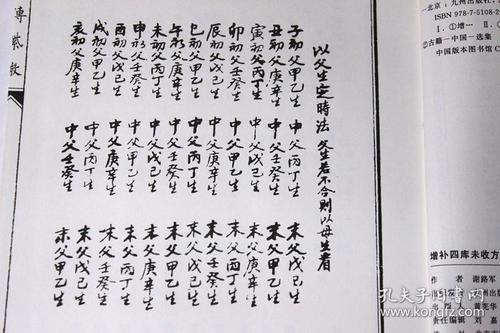 北京：九州出版社，
ISBN 978-7-5108-2
Ⅰ.①增… Ⅱ.
②古籍－中国－选集
中国版本图书馆C
增补四库未收方
作 者 谢路军
出版发行
出 版 人 黄宪华
责任编辑 刘 嘉
以父生定時法 父生若不合則以母生看
子初父甲乙生 中父丙丁生 末父戊己生
丑初父庚辛生 中父壬癸生 末父甲乙生
寅初父丙丁生 中父戊己生 末父庚辛生
卯初父壬癸生 中父甲乙生 末父丙丁生
辰初父戊己生 中父庚辛生 末父壬癸生
巳初父甲乙生 中父丙丁生 末父戊己生
午初父庚辛生 中父壬癸生 末父甲乙生
未初父丙丁生 中父戊己生 末父庚辛生
申初父壬癸生 中父甲乙生 末父丙丁生
酉初父戊己生 中父庚辛生 末父壬癸生
戌初父甲乙生 中父丙丁生 末父戊己生
亥初父庚辛生 中父壬癸生 末父甲乙生
孔夫子旧书网